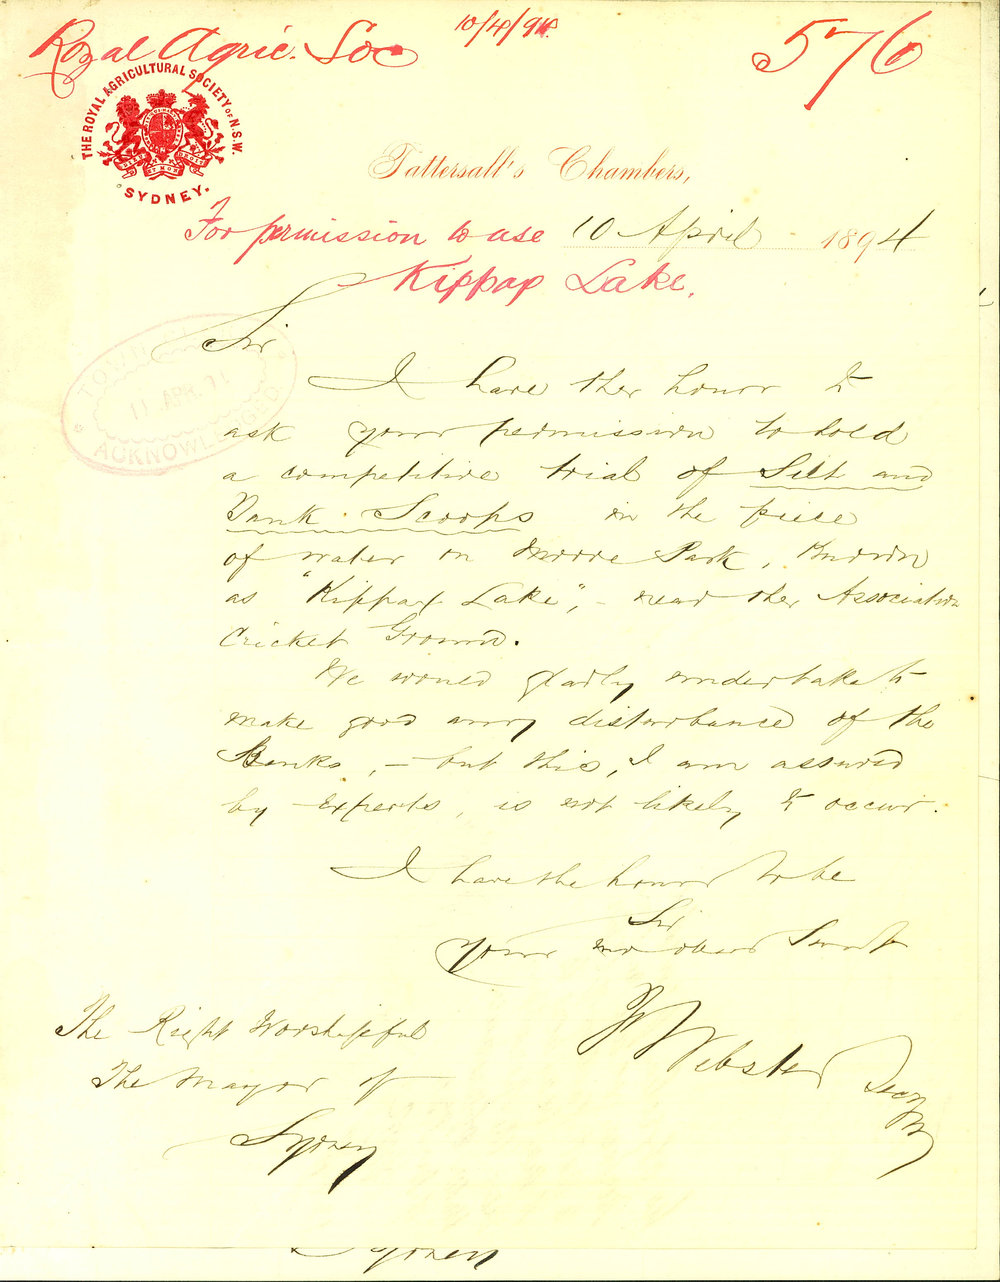 Royal Agric. Soc
10/4/94
576
THE ROYAL AGRICULTURAL SOCIETY OF N.S.W.
SYDNEY.
Tattersall's Chambers,
For permission to use
10 April 1894
Kippax Lake.
Sir
TOWN
11 APR. 94
ACKNOWLEDGED
I have the honor to
ask your permission to hold
a competitive trial of Silt and
Tank Scoops in the piece
of water on Moore Park, known
as "Kippax Lake", - near the Association
Cricket Ground.
We would gladly undertake to
make good any disturbance of the
Banks, - but this, I am assured
by experts, is not likely to occur.
I have the honor to be
Sir
Your Servt
Webster
Secy
The Right Worshipful
The Mayor of
Sydney
Sydney